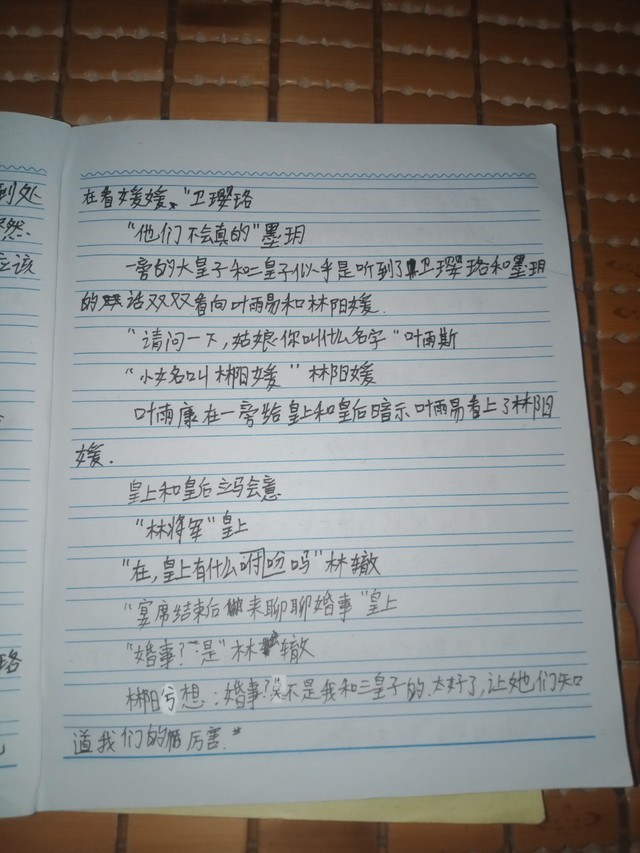 到处
然、
应该
珞
在看媛媛。"卫璎珞
"他们不会真的"墨玥
一旁的大皇子和二皇子似乎是听到了卫璎珞和墨玥
的对话双双看向叶雨易和林阳媛.
"请问一下,姑娘你叫什么名字"叶雨斯
"小女名叫林阳媛"林阳媛
叶雨康在一旁给皇上和皇后暗示叶雨易看上了林阳
媛.
皇上和皇后立马会意
"林将军"皇上
"在,皇上有什么吩咐吗"林辙
"宴席结束后来聊聊婚事"皇上
"婚事?是"林辙
林阳兮想:婚事?莫不是我和三皇子的.太好了,让她们知
道我们的厉害."